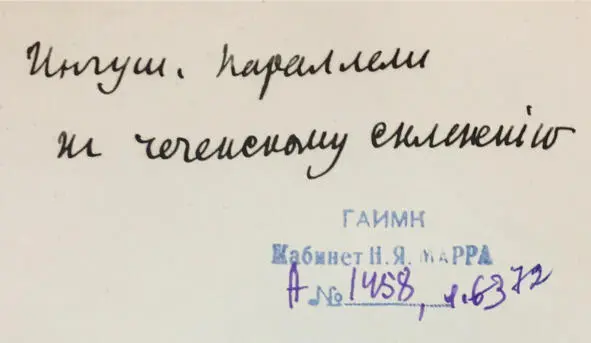 Ингуш. параллели
къ чеченскому склоненію
ГАИМК
Кабинет Н.Я. МАРРА
А № 1458, л.6372